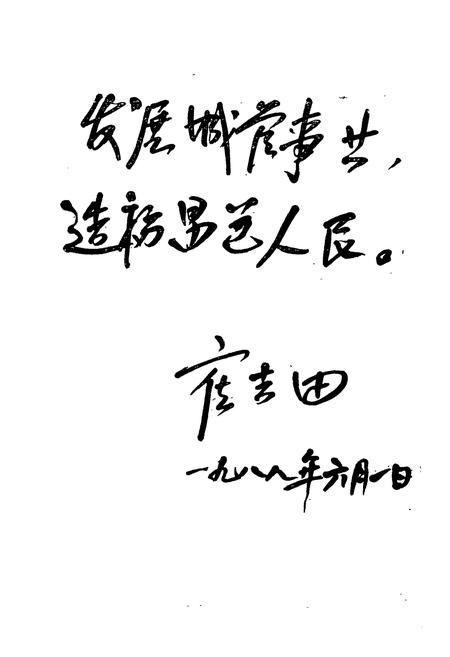 发展城管事业，
造福昌邑人民。
吉田
一九八八年六月一日